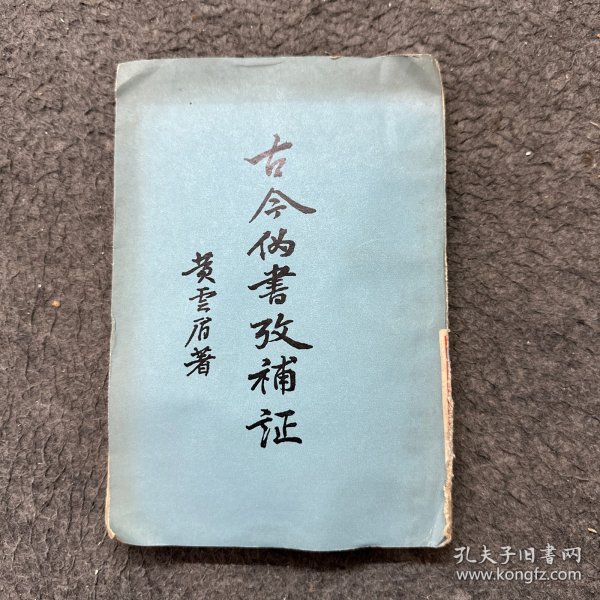 古今伪書攷補証
黄雲眉著
孔夫子旧書网
www.kongfz.com